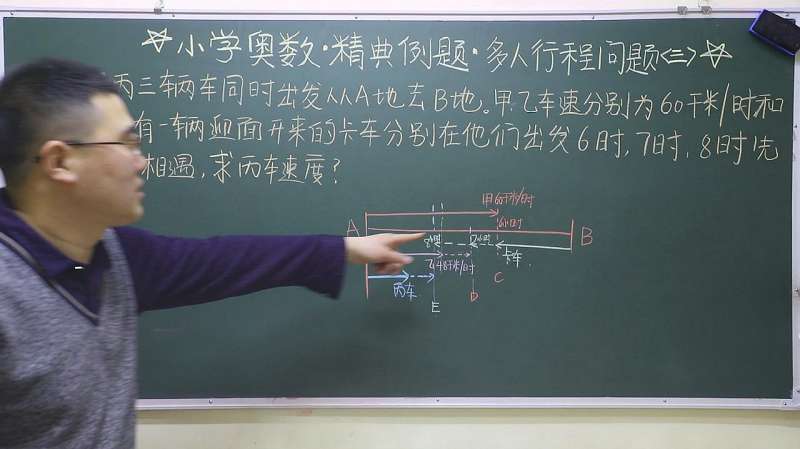 小学奥数·精典例题·多人行程问题<三>
丙三车辆车同时出发从A地去B地。甲.乙车速分别为60千米/时和
有一辆迎面开来的卡车分别在他们出发6时,7时,8时先
相遇,求丙车速度?
甲60千米/时
6小时
A
B
7小时
卡车
乙48千米/时
C
丙车
E
D